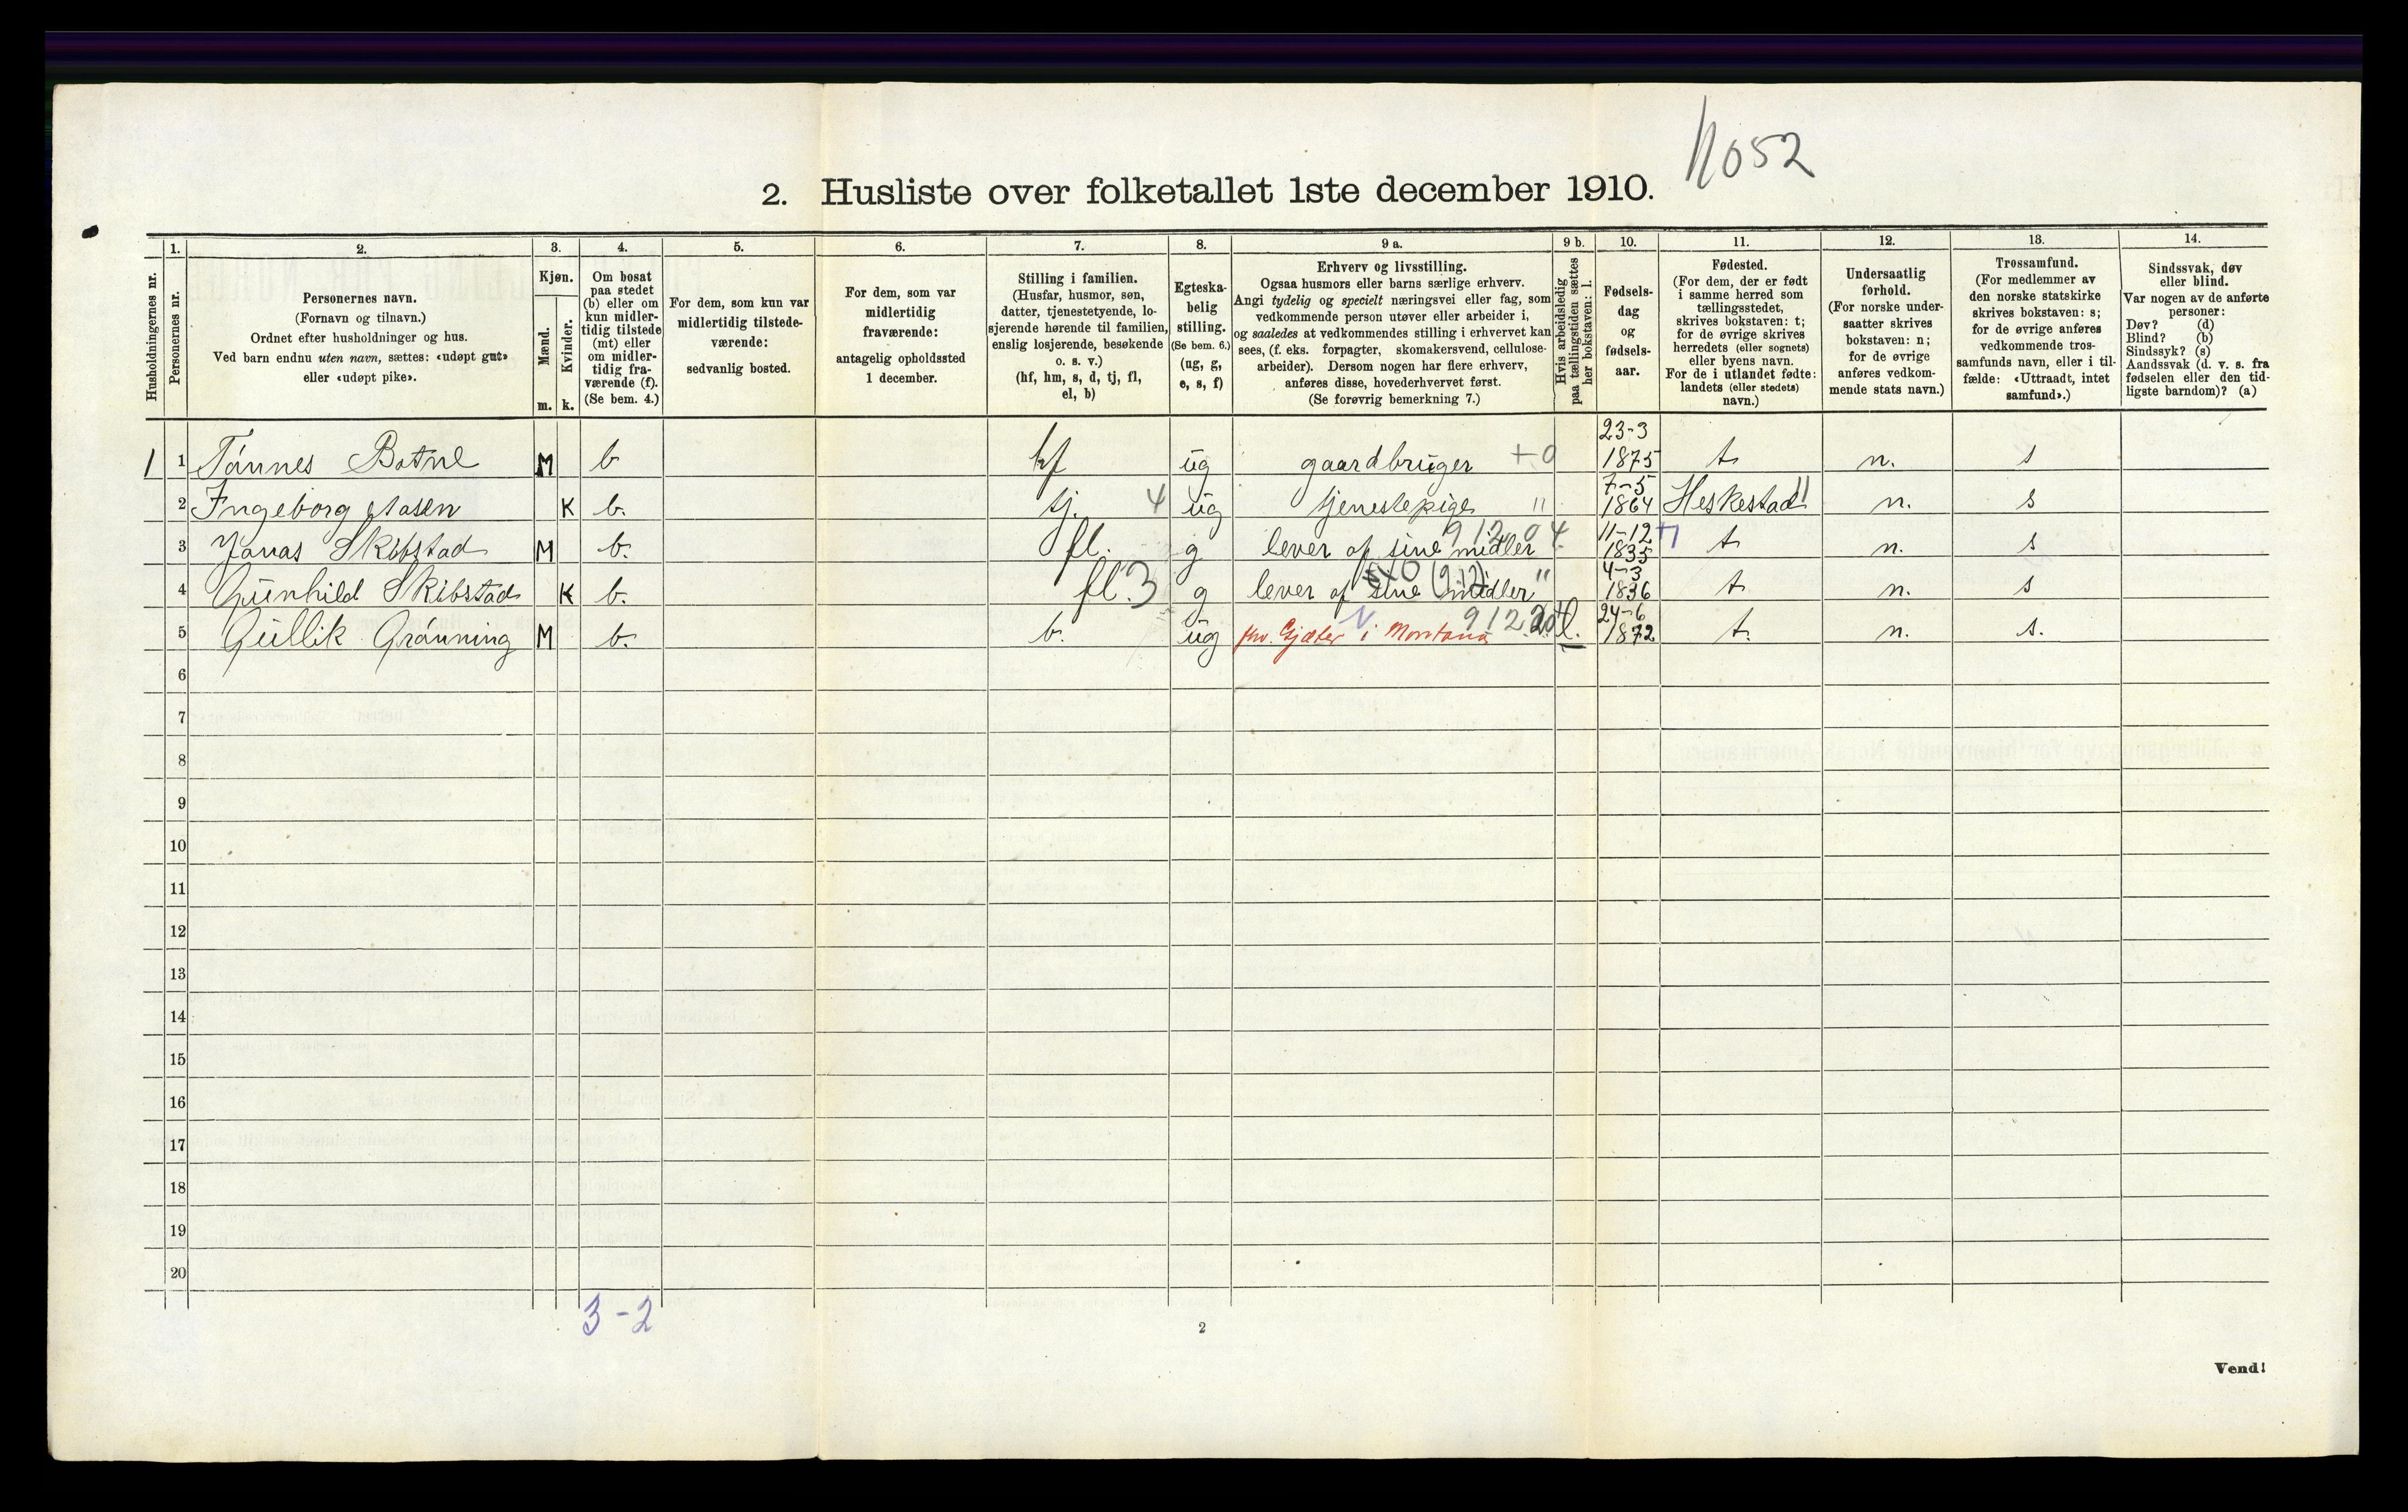 1052
2. Husliste over folketallet 1ste december 1910.
Husholdningernes nr.
1.
Personernes nr.
2.
Personernes navn.
(Fornavn og tilnavn.)
Ordnet efter husholdninger og hus.
Ved barn endnu uten navn, sættes: «udøpt gut»
eller «udøpt pike».
3.
Kjøn.
Mænd.
Kvinder.
m. k.
4.
Om bosat
paa stedet
(b) eller om
kun midler-
tidig tilstede
(mt) eller
om midler-
tidig fra-
værende (f).
(Se bem. 4.)
5.
For dem, som kun var
midlertidig tilstede-
værende:
sedvanlig bosted.
6.
For dem, som var
midlertidig
fraværende:
antagelig opholdssted
1 december.
7.
Stilling i familien.
(Husfar, husmor, søn,
datter, tjenestetyende, lo-
sjerende hørende til familien,
enslig losjerende, besøkende
o. s. v.)
(hf, hm, s, d, tj, fl,
el, b)
8.
Egteska-
belig
stilling.
(Se bem. 6.)
(ug, g,
e, s, f)
9 a.
Erhverv og livsstilling.
Ogsaa husmors eller barns særlige erhverv.
Angi tydelig og specielt næringsvei eller fag, som
vedkommende person utøver eller arbeider i,
og saaledes at vedkommendes stilling i erhvervet kan
sees, (f. eks. forpagter, skomakersvend, cellulose-
arbeider). Dersom nogen har flere erhverv,
anføres disse, hovederhvervet først.
(Se forøvrig bemerkning 7.)
9 b.
Hvis arbeidsledig
paa tællingstiden sættes
her bokstaven: l.
10.
Fødsels-
dag
og
fødsels-
aar.
11.
Fødested.
(For dem, der er født
i samme herred som
tællingsstedet,
skrives bokstaven: t;
for de øvrige skrives
herredets (eller sognets)
eller byens navn.
For de i utlandet fødte:
landets (eller stedets)
navn.)
12.
Undersaatlig
forhold.
(For norske under-
saatter skrives
bokstaven: n;
for de øvrige
anføres vedkom-
mende stats navn.)
13.
Trossamfund.
(For medlemmer av
den norske statskirke
skrives bokstaven: s;
for de øvrige anføres
vedkommende tros-
samfunds navn, eller i til-
fælde: «Uttraadt, intet
samfund».)
14.
Sindssvak, døv
eller blind.
Var nogen av de anførte
personer:
Døv? (d)
Blind? (b)
Sindssyk? (s)
Aandssvak (d. v. s. fra
fødselen eller den tid-
ligste barndom)? (a)
1 1 Tønnes Botne M b hf ug gaardbruger +0 23-3 1875 t n. s
2 Ingeborg Aasen K b. tj. 4 ug tjenestepige " 7-5 1864 Heskestad n. s
3 Jonas Skibstad M b. fl. g lever af sine midler 912.04 11-12 1835 t n. s
4 Gunhild Skibstad K b. fl. 3 g lever af sine midler (912) " 4-3 1836 t n. s
5 Gullik Grønning M b. b. ug Gjæter i Montana 912 l. 24-6 1872 t. n. s.
6
7
8
9
10
11
12
13
14
15
16
17
18
19
20
3-2
2
Vend!